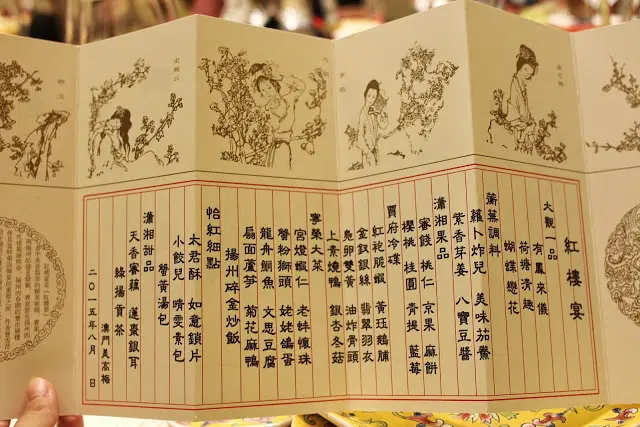 紅樓宴
大觀一品
有鳳來儀
荷塘清趣
蝴蝶戀花
蘅蕪調料
蘿卜炸兒 美味茄鯗
紫香芽姜 八寶豆醬
瀟湘果品
蜜餞 桃仁 京果 麻餅
櫻桃 桂圓 青提 藍莓
賈府冷碟
紅袍脆蝦 黃珏鵝脯
金釵銀絲 翡翠羽衣
鳧卵雙黃 油炸骨頭
上素燒鴨 銀杏冬菇
寧榮大菜
宮燈蝦仁 老蚌懷珠
蟹粉獅頭 姥姥鴿蛋
龍舟鯛魚 文思豆腐
扇面蘆笋 菊花麻鴨
揚州碎金炒飯
怡紅細點
太君酥 如意鎖片
小餃兒 晴雯素包
蟹黃湯包
瀟湘甜品
天香蜜藕 蓮棗銀耳
綠揚貢茶
澳門美高梅
二〇一五年八月 日
史湘云